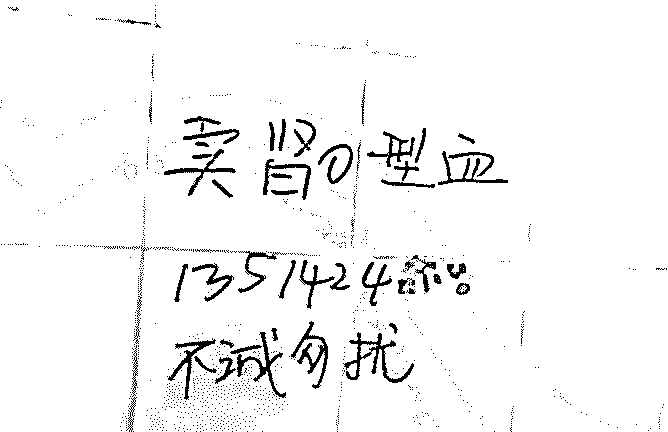 卖肾O型血
1351424
不诚勿扰